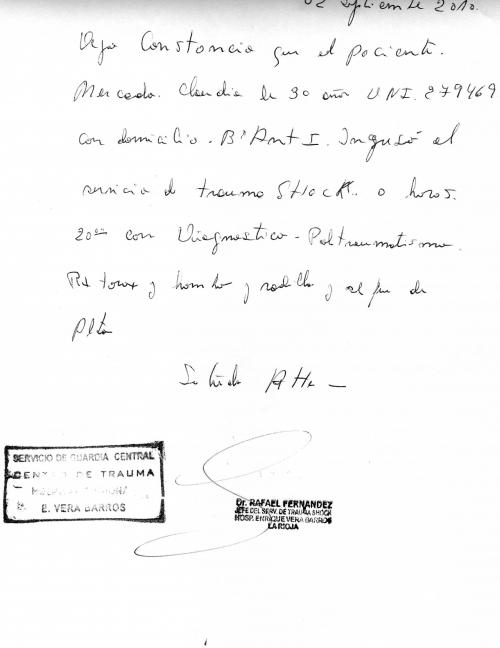 02 septiembre 2010.
Dejo Constancia que el paciente.
Mercado. Claudia de 30 años DNI. 279469
con domicilio. Bº Ant I. Ingresó al
servicio de trauma Shock. a horas.
20:00 con Diagnostico - Politraumatismo.
Rx torax y hombro y rodilla y al pie de
Saluda Atte -
SERVICIO DE GUARDIA CENTRAL
CENTRO DE TRAUMA
E. VERA BARROS
Dr. RAFAEL FERNANDEZ
JEFE DEL SERV. DE TRAUMA SHOCK
HOSP. ENRIQUE VERA BARROS
LA RIOJA